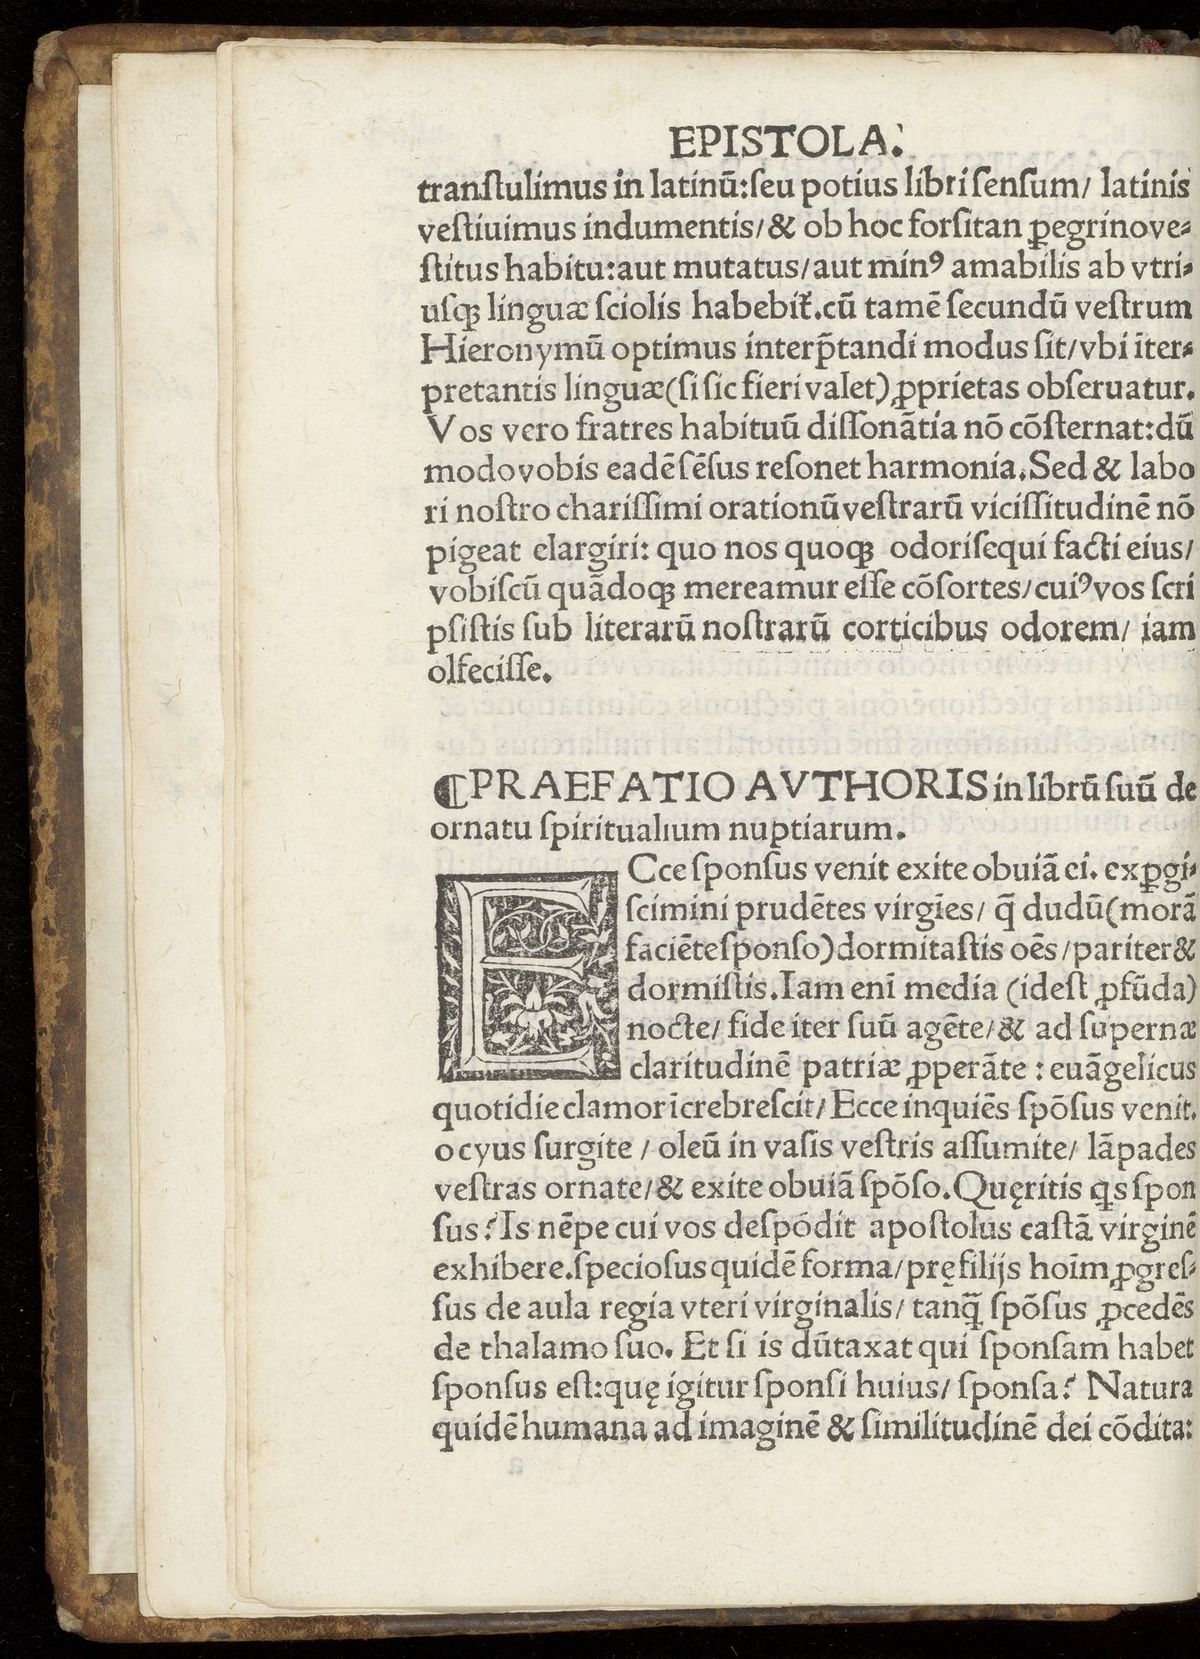 EPISTOLA.
tranſtulimus in latinū:ſeu potius libri ſenſum/ latinis
veſtiuimus indumentis/& ob hoc forſitan ꝑegrinove⸗
ſtitus habitu:aut mutatus/aut minꝰ amabilis ab vtri⸗
uſqꝫ linguæ ſciolis habebit̃.cū tamē ſecundū veſtrum
Hieronymū optimus interp̄tandi modus ſit/vbi īter⸗
pretantis linguæ(ſi ſic fieri valet)ꝓprietas obſeruatur.
Vos vero fratres habituū diſſonātia nō cōſternat:dū
modovobis eadē ſēſus reſonet harmonia.Sed & labo
ri noſtro chariſſimi orationū veſtrarū viciſſitudinē nō
pigeat elargiri: quo nos quoqꝫ odoriſequi facti eius/
vobiſcū quādoqꝫ mereamur eſſe cōſortes/cuiꝰvos ſcri
pſiſtis ſub literarū noſtrarū corticibus odorem/ iam
olfeciſſe.
¶PRAEFATIO AVTHORIS in librū ſuū de
ornatu ſpiritualium nuptiarum.
ECce ſponſus venit exite obuiā ei. exꝑgi⸗
ſcimini prudētes virgīes/ q̄ dudū(morā
faciēteſponſo)dormitaſtis oēs/pariter&
dormiſtis.Iam enī media (ideſt ꝓfūda)
nocte/ fide iter ſuū agēte/& ad ſupernæ
claritudinē patriæ ꝓperāte : euāgelicus
quotidie clamor īcrebreſcit/Ecce inquiēs ſpōſus venit.
ocyus ſurgite / oleū in vaſis veſtris aſſumite/ lāpades
veſtras ornate/& exite obuiā ſpōſo.Quęritis ꝗs ſpon
ſus? Is nēpe cui vos deſpōdit apoſtolus caſtā virginē
exhibere.ſpecioſus quidē forma/prę filijs hoīm ꝓgreſ⸗
ſus de aula regia vteri virginalis/ tanq̄ ſpōſus ꝓcedēs
de thalamo ſuo. Et ſi is dūtaxat qui ſponſam habet
ſponſus eſt:quę igitur ſponſi huius/ ſponſa? Natura
quidē humana ad imaginē & ſimilitudinē dei cōdita: